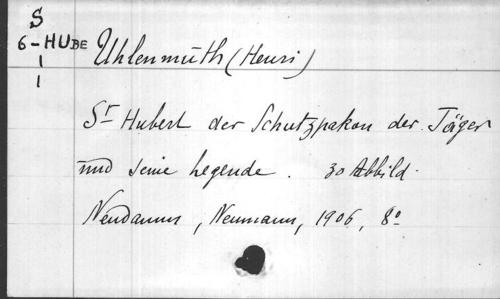 S
6-HUBE
1
1
Uhlenmüth (Henri)
St Hubert der Schutzpakon der Jäger
und seine Legende. 30 Abbild.
Neudamm, Neumann, 1906, 8o